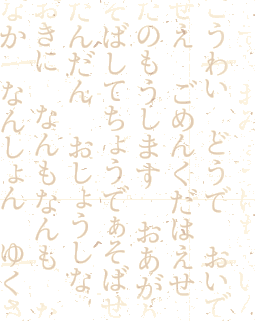 こうわい どうで おいで
せえ ごめんくだはえせ
たのもうします おあが
そばしてちょうでぁそばせ
だんだん おじょうしな
おきに なんもなんも
なか なんしょん ゆくさ